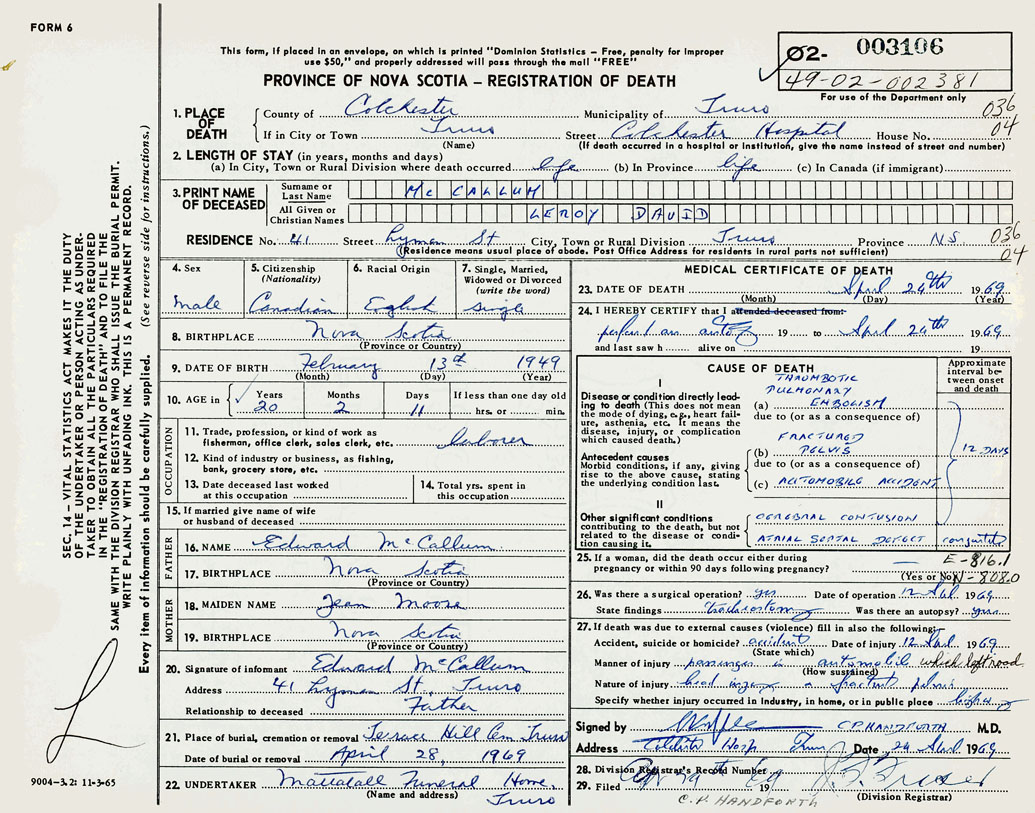 FORM 6
This form, if placed in an envelope, on which is printed "Dominion Statistics – Free, penalty for improper
use $50," and properly addressed will pass through the mail "FREE"
PROVINCE OF NOVA SCOTIA – REGISTRATION OF DEATH
02- 003106
49-02-002381
For use of the Department only
1. PLACE OF DEATH County of Colchester Municipality of Truro 036
If in City or Town Truro Street Colchester Hospital House No. 04
(Name) (If death occurred in a hospital or institution, give the name instead of street and number)
2. LENGTH OF STAY (in years, months and days)
(a) In City, Town or Rural Division where death occurred life (b) In Province life (c) In Canada (if immigrant)
3. PRINT NAME OF DECEASED
Surname or Last Name McCALLUM
All Given or Christian Names LEROY DAVID
RESIDENCE No. 41 Street Lyman St City, Town or Rural Division Truro Province N.S. 036
04
(Residence means usual place of abode. Post Office Address for residents in rural parts not sufficient)
4. Sex
male
5. Citizenship (Nationality)
Canadian
6. Racial Origin
English
7. Single, Married, Widowed or Divorced (write the word)
single
8. BIRTHPLACE Nova Scotia
(Province or Country)
9. DATE OF BIRTH February 13th 1949
(Month) (Day) (Year)
10. AGE in Years Months Days If less than one day old
20 2 11 hrs. or min.
OCCUPATION
11. Trade, profession, or kind of work as
fisherman, office clerk, sales clerk, etc. laborer
12. Kind of industry or business, as fishing,
bank, grocery store, etc.
13. Date deceased last worked
at this occupation
14. Total yrs. spent in
this occupation
15. If married give name of wife
or husband of deceased
FATHER
16. NAME Edward McCallum
17. BIRTHPLACE Nova Scotia
(Province or Country)
MOTHER
18. MAIDEN NAME Jean Moose
19. BIRTHPLACE Nova Scotia
(Province or Country)
20. Signature of informant Edward McCallum
Address 41 Lyman St., Truro
Relationship to deceased Father
21. Place of burial, cremation or removal Terrace Hill Cem Truro
Date of burial or removal April 28, 1969
22. UNDERTAKER Mattatall Funeral Home,
(Name and address) Truro
MEDICAL CERTIFICATE OF DEATH
23. DATE OF DEATH April 24th 1969
(Month) (Day) (Year)
24. I HEREBY CERTIFY that I attended deceased from:
perform an autopsy 19 to April 24th 1969
and last saw h alive on 19
CAUSE OF DEATH
Approximate interval between onset and death
I
Disease or condition directly leading to death (This does not mean the mode of dying, e.g., heart failure, asthenia, etc. It means the disease, injury, or complication which caused death.)
THROMBOTIC
PULMONARY
(a) EMBOLISM
due to (or as a consequence of)
FRACTURED
(b) PELVIS
12 DAYS
due to (or as a consequence of)
(c) AUTOMOBILE ACCIDENT
Antecedent causes
Morbid conditions, if any, giving rise to the above cause, stating the underlying condition last.
II
Other significant conditions
contributing to the death, but not related to the disease or condition causing it.
CEREBRAL CONTUSION
ATRIAL SEPTAL DEFECT congenital
25. If a woman, did the death occur either during
pregnancy or within 90 days following pregnancy? —
(Yes or No)
E-816.1
N-808.0
26. Was there a surgical operation? yes Date of operation 12 April 1969
State findings tracheostomy Was there an autopsy? yes
27. If death was due to external causes (violence) fill in also the following:
Accident, suicide or homicide? accident Date of injury 12 April 1969
(State which)
Manner of injury passenger in automobile which left road
(How sustained)
Nature of injury head injury & fractured pelvis
Specify whether injury occurred in Industry, in home, or in public place highway
Signed by C.P. HANDFORTH M.D.
Address Colchester Hosp Truro Date 24 April 1969
28. Division Registrar's Record Number
29. Filed Apr 29 1969
(Division Registrar)
C.P. HANDFORTH
SEC. 14 – VITAL STATISTICS ACT MAKES IT THE DUTY
OF THE UNDERTAKER OR PERSON ACTING AS UNDER-
TAKER TO OBTAIN ALL THE PARTICULARS REQUIRED
IN THE "REGISTRATION OF DEATH" AND TO FILE THE
SAME WITH THE DIVISION REGISTRAR WHO SHALL ISSUE THE BURIAL PERMIT.
WRITE PLAINLY WITH UNFADING INK. THIS IS A PERMANENT RECORD.
Every item of information should be carefully supplied. (See reverse side for instructions.)
9004–3.2: 11-3-65